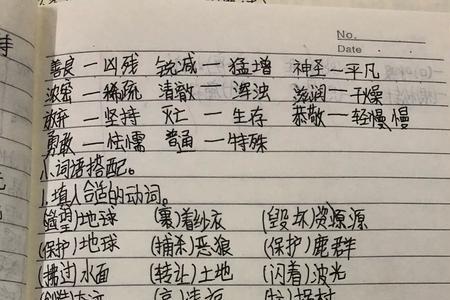 No.
Date
善良—凶残 锐减—猛增 神圣—平凡
浓密—稀疏 清澈—浑浊 滋润—干燥
敢弃—坚持 灭—生存 恭敬—轻慢慢
勇敢—怯懦 普通—特殊
八、词语搭配。
1.填入合适的动词。
(遥望)地球 (裹)着纱衣 (毁坏)资源源
(保护)地球 (捕杀)恶狼 (保护)鹿群
(拂过)水面 (转让)土地 (闪着)波光